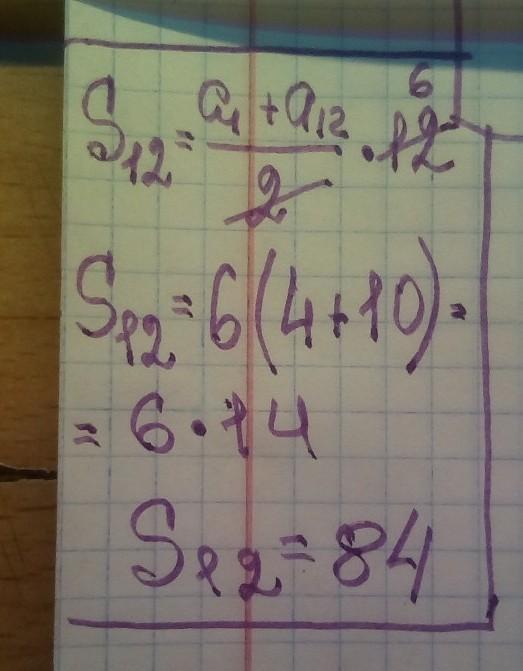 S₁₂ = (a₁ + a₁₂)/2 · 12 6
S₁₂ = 6(4+10) =
= 6 · 14
S₁₂ = 84